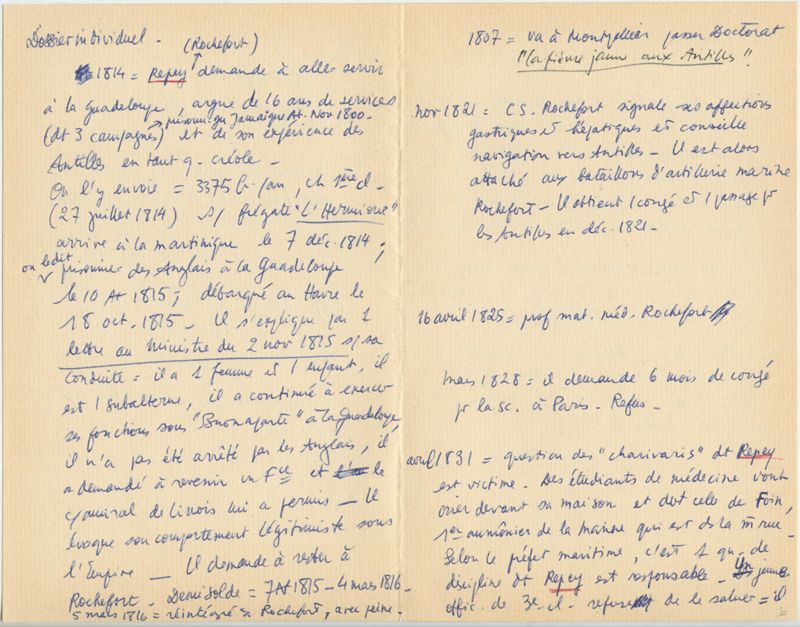 Dossier individuel - (Rochefort)
1814 = Repey demande à aller servir
à la Guadeloupe, argue de 16 ans de services
(dt 3 campagnes) → prisonn. gu Jamaïque At. Nov 1800.
et de son expérience des
Antilles en tant q. créole -
On l'y envoie = 3375 f/an, ch 1ère cl -
(27 juillet 1814) s/ frégate "L'Hermione"
arrive à la Martinique le 7 déc. 1814;
on le dit prisonnier des Anglais à la Guadeloupe
le 10 At 1815; débarqué au Havre le
18 oct. 1815 - Il s'explique par 1
lettre au Ministre du 2 nov 1815 s/ sa
conduite = il a 1 femme et 1 enfant, il
est 1 subalterne, il a continué à exercer
ses fonctions sous "Buonaparte" à la Guadeloupe,
il n'a pas été arrêté par les Anglais, il
a demandé à revenir en Fce et le
c/amiral de Linois lui a permis - Il
évoque son comportement légitimiste sous
l'Empire - Il demande à rester à
Rochefort - Demi solde = 7 At 1815 - 4 mars 1816 -
5 mars 1816 = réintégré à Rochefort, avec peine -
1807 = va à Montpellier passer Doctorat
"La fièvre jaune aux Antilles"!
nov 1821 = CS. Rochefort signale ses affections
gastriques et hépatiques et conseille
navigation vers Antilles - Il est alors
attaché aux bataillons d'artillerie marine
Rochefort - Il obtient 1 congé et 1 passage pr
les Antilles en déc. 1821 -
16 avril 1825 = prof mat. méd. Rochefort
mars 1828 = il demande 6 mois de congé
pr la sc. à Paris - Refus -
avril 1831 = question des "charivaris" dt Repey
est victime. Des étudiants de médecine vont
crier devant sa maison et dvt celle de Foin,
1er aumônier de la Marine qui est ds la m̂ rue -
Selon le préfet maritime, c'est 1 qu. de
discipline dt Repey est responsable - jeunes
offic. de 3e cl - refusent de le saluer = il